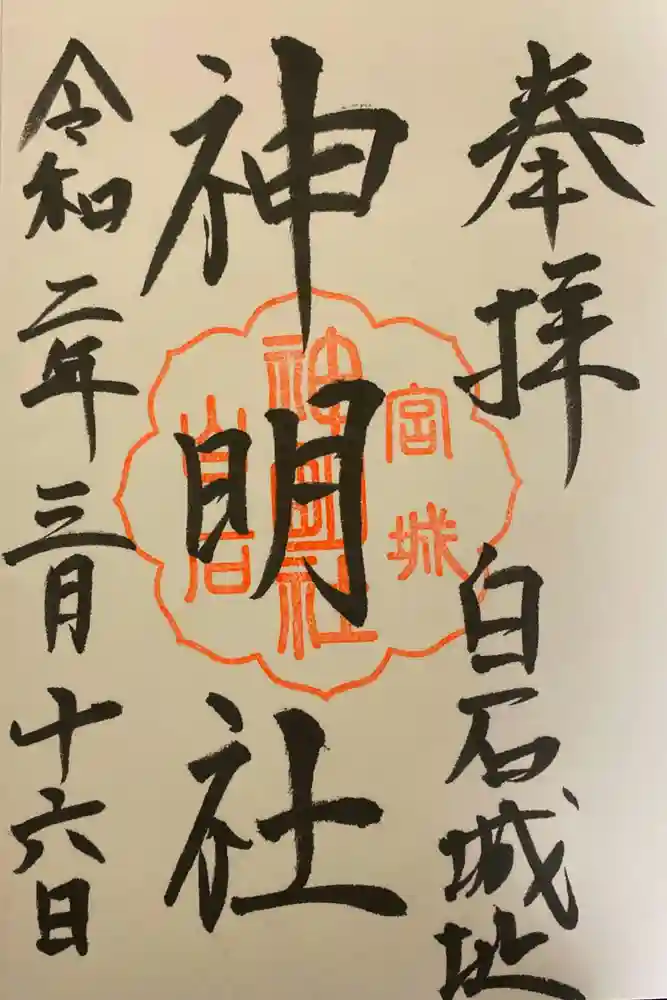 奉拝
白石城址
神明社
令和二年三月十六日
宮城
神明社
白石